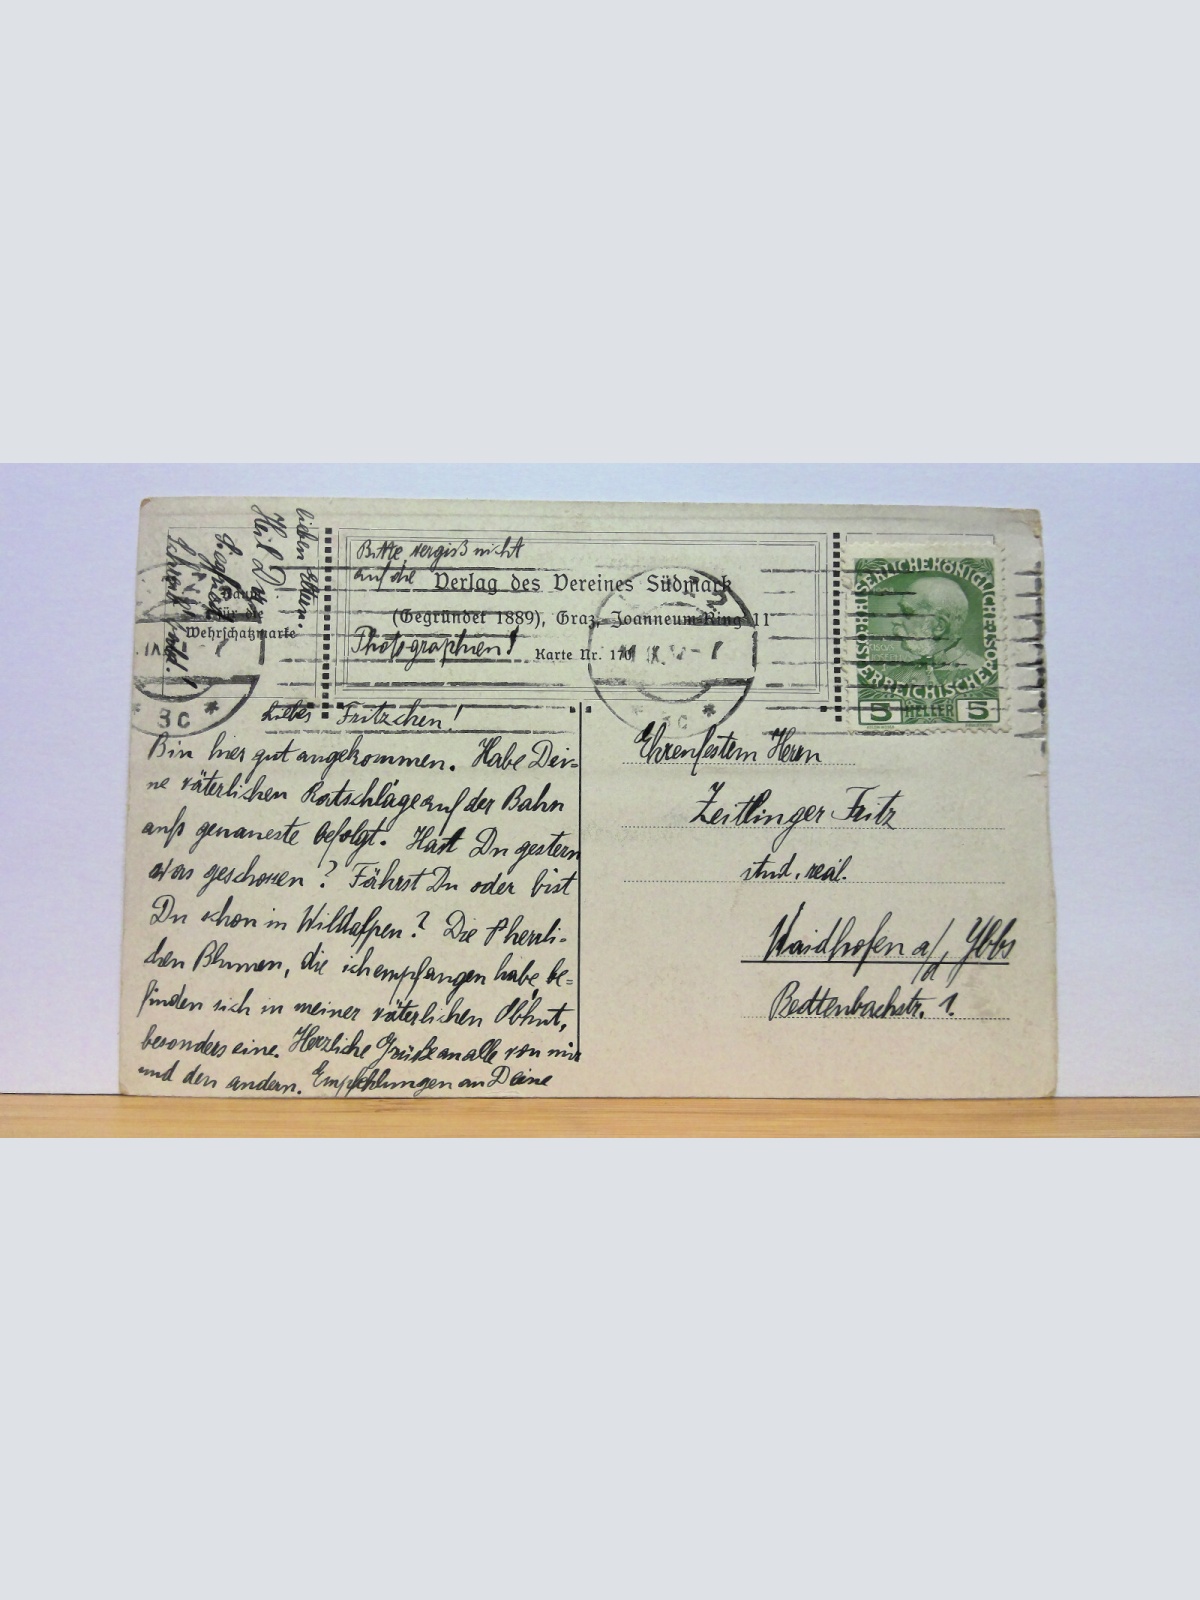 Bitte vergiß nicht
auf die
Verlag des Vereines Südmark
(Gegründet 1889), Graz, Joanneum-Ring 11
Photographien!
Karte Nr. 170
für die
Wehrschatzmarke
lieben Eltern.
Heil Dir
Schreib bald!
3C
KAISERLICHEKÖNIGLICHE
ÖSTERREICHISCHE POST
5 HELLER 5
Liebes Fritzchen!
Bin hier gut angekommen. Habe Dei=
ne väterlichen Ratschläge auf der Bahn
aufs genaueste befolgt. Hast Du gestern
was geschossen? Fährst Du oder bist
Du schon in Wildalpen? Die herrli-
chen Blumen, die ich empfangen habe, be=
finden sich in meiner väterlichen Obhut,
besonders eine. Herzliche Grüße an alle von mir
und den andern. Empfehlungen an Deine
Ehrenfestem Herrn
Zeitlinger Fritz
stud. real.
Waidhofen a/d. Ybbs
Redtenbachstr. 1.